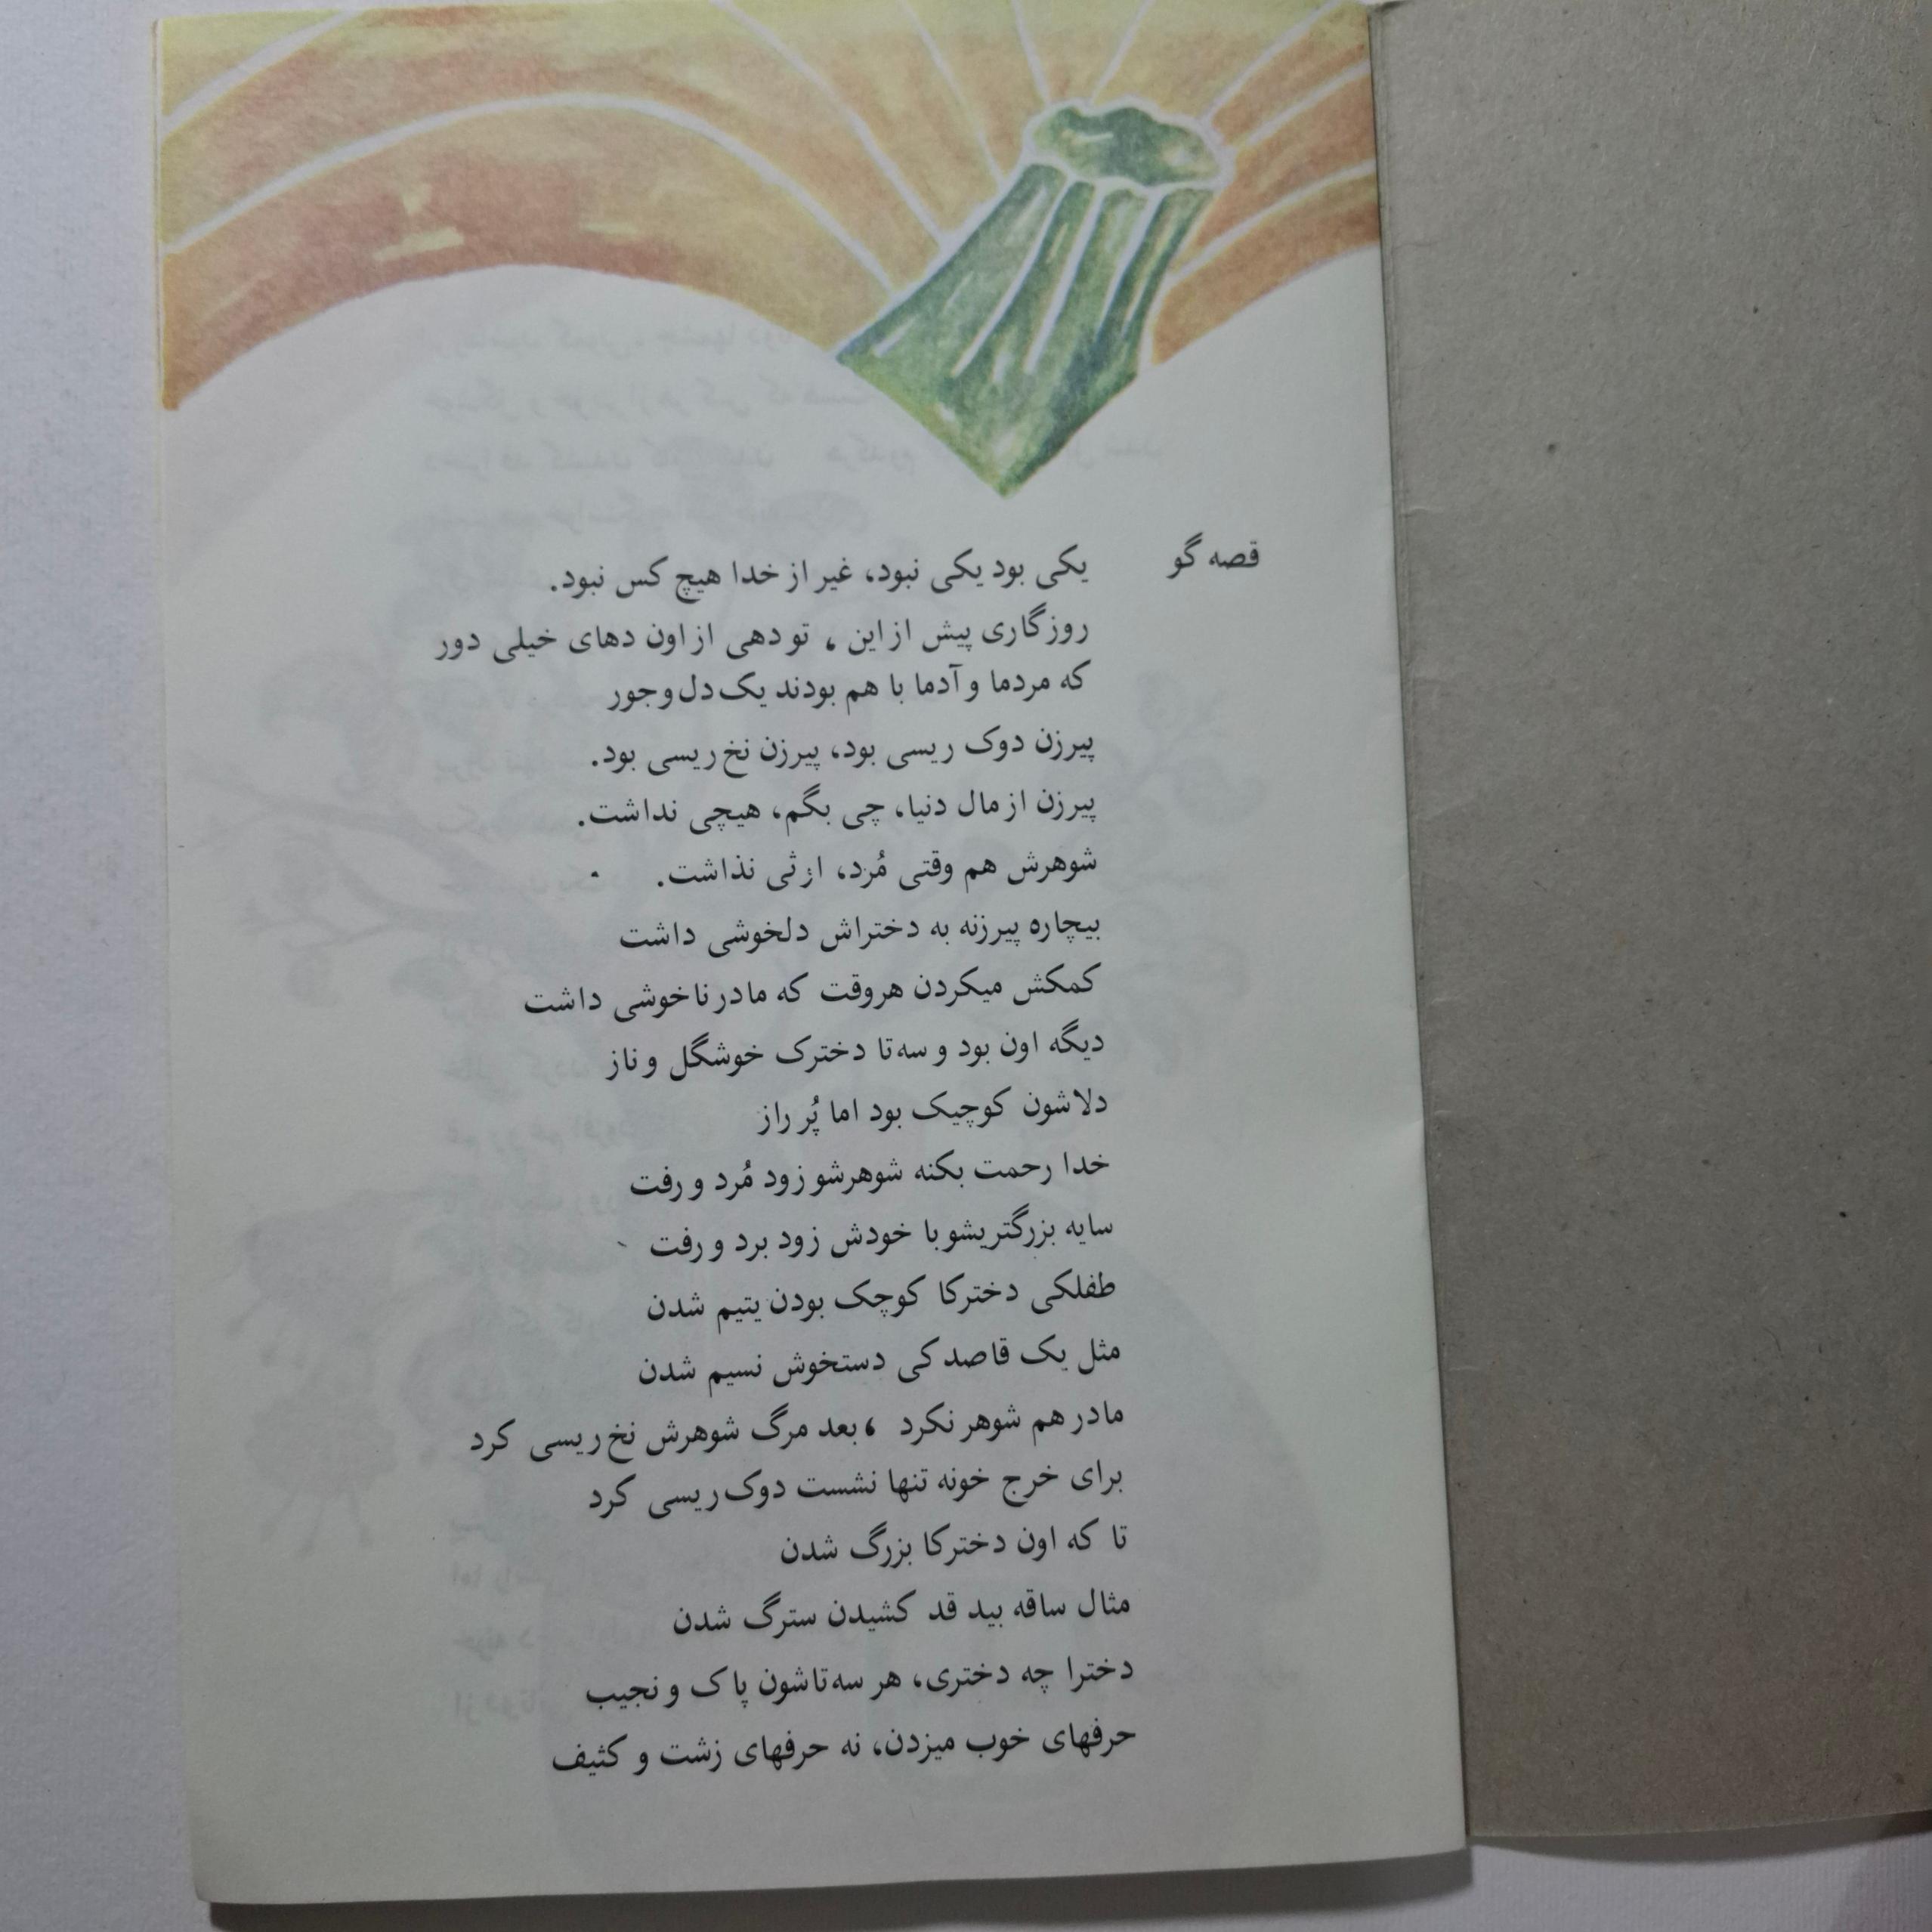 قصه گو یکی بود یکی نبود، غیر از خدا هیچ کس نبود.
روزگاری پیش از این ، تو دهی از اون دهای خیلی دور
که مردما و آدما با هم بودند یک دل و جور
پیرزن دوک ریسی بود، پیرزن نخ ریسی بود.
پیرزن از مال دنیا، چی بگم، هیچی نداشت.
شوهرش هم وقتی مُرد، ارثی نذاشت.
بیچاره پیرزنه به دختراش دلخوشی داشت
کمکش میکردن هروقت که مادر ناخوشی داشت
دیگه اون بود و سه تا دخترک خوشگل و ناز
دلاشون کوچیک بود اما پُر راز
خدا رحمت بکنه شوهرشو زود مُرد و رفت
سایه بزرگتریشو با خودش زود برد و رفت
طفلکی دخترکا کوچک بودن یتیم شدن
مثل یک قاصدکی دستخوش نسیم شدن
مادر هم شوهر نکرد ، بعد مرگ شوهرش نخ ریسی کرد
برای خرج خونه تنها نشست دوک ریسی کرد
تا که اون دخترکا بزرگ شدن
مثال ساقه بید قد کشیدن سترگ شدن
دخترا چه دختری، هر سه تاشون پاک و نجیب
حرفهای خوب میزدن، نه حرفهای زشت و کثیف